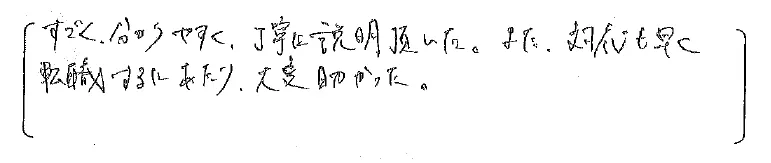 すごく、分かりやすく、丁寧に説明頂いた。また、対応も早く
転職するにあたり、大変助かった。